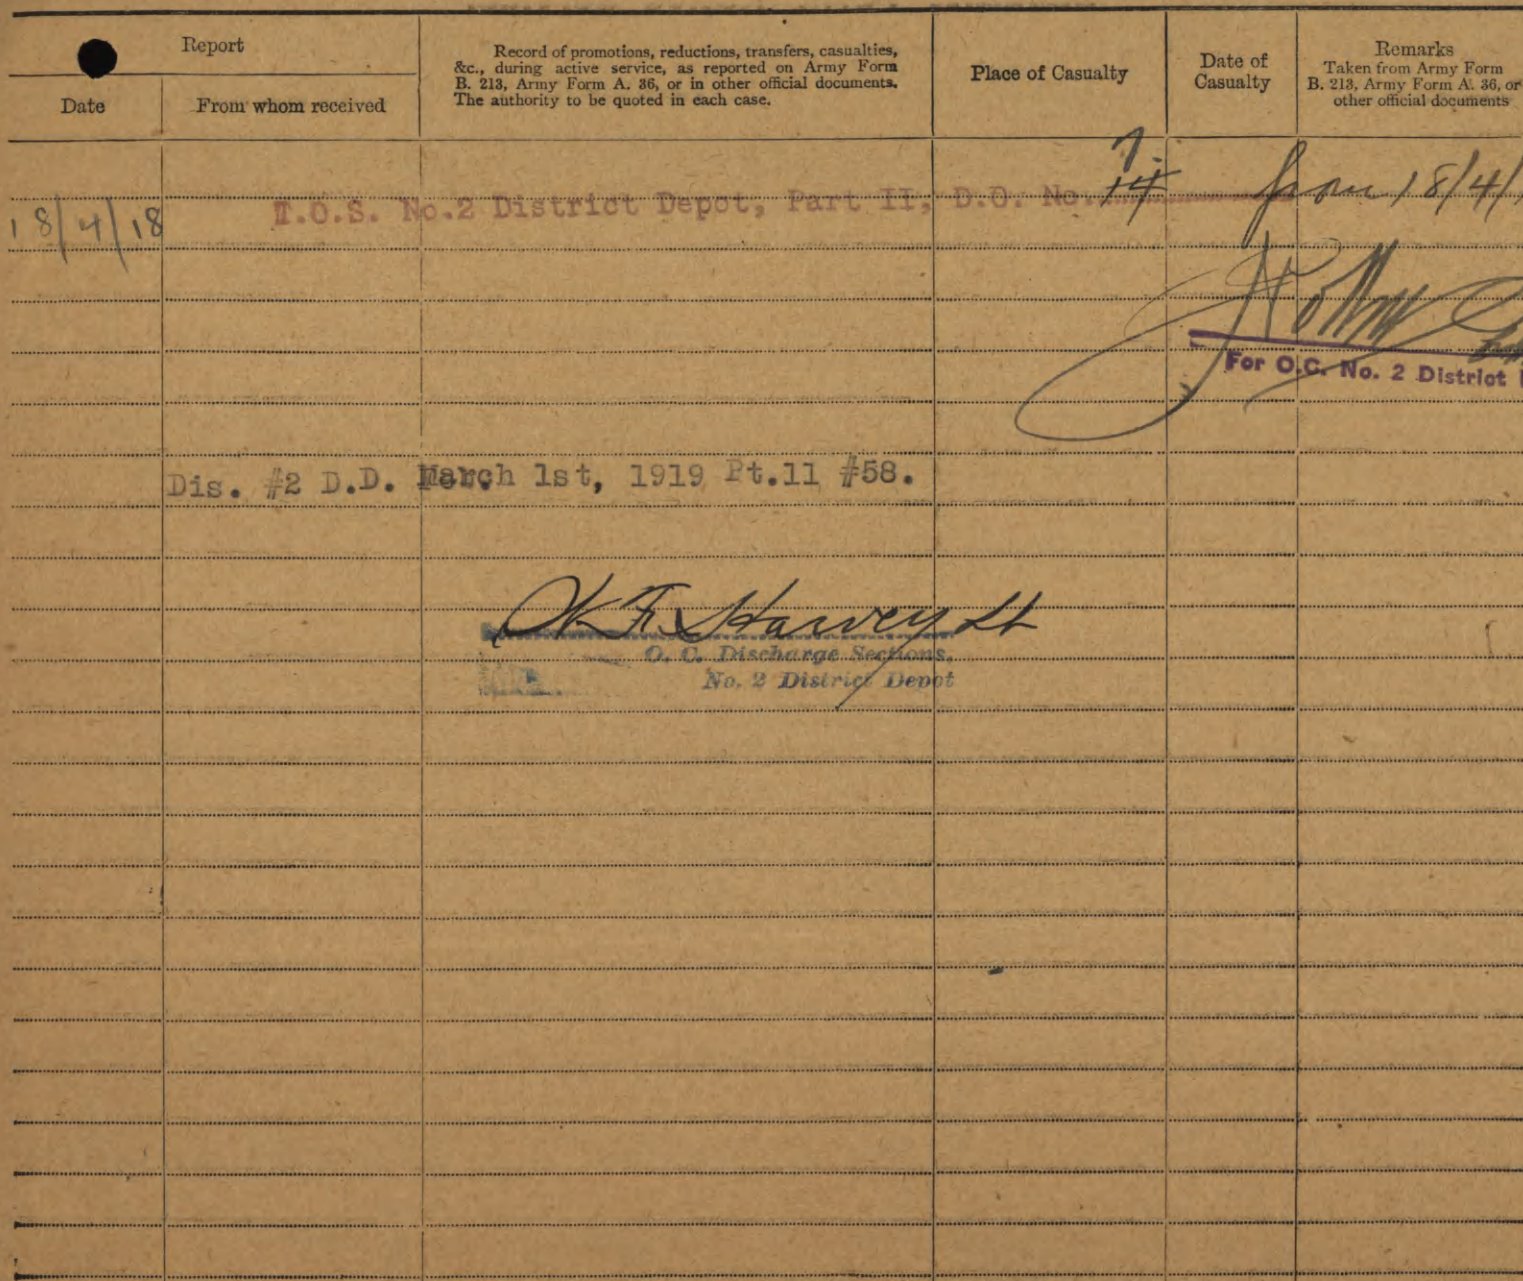 Report
Date
From whom received
Record of promotions, reductions, transfers, casualties,
&c., during active service, as reported on Army Form
B. 213, Army Form A. 36, or in other official documents.
The authority to be quoted in each case.
Place of Casualty
Date of
Casualty
Remarks
Taken from Army Form
B. 213, Army Form A. 36, or
other official documents
18/4/18
T.O.S. No.2 District Depot, Part II, D.O. No. 14 from 18/4/
7.
For O.C. No. 2 District
Dis. #2 D.D. March 1st, 1919 Pt.11 #58.
W.F. Harvey Lt
O. C. Discharge Sections,
No. 2 District Depot